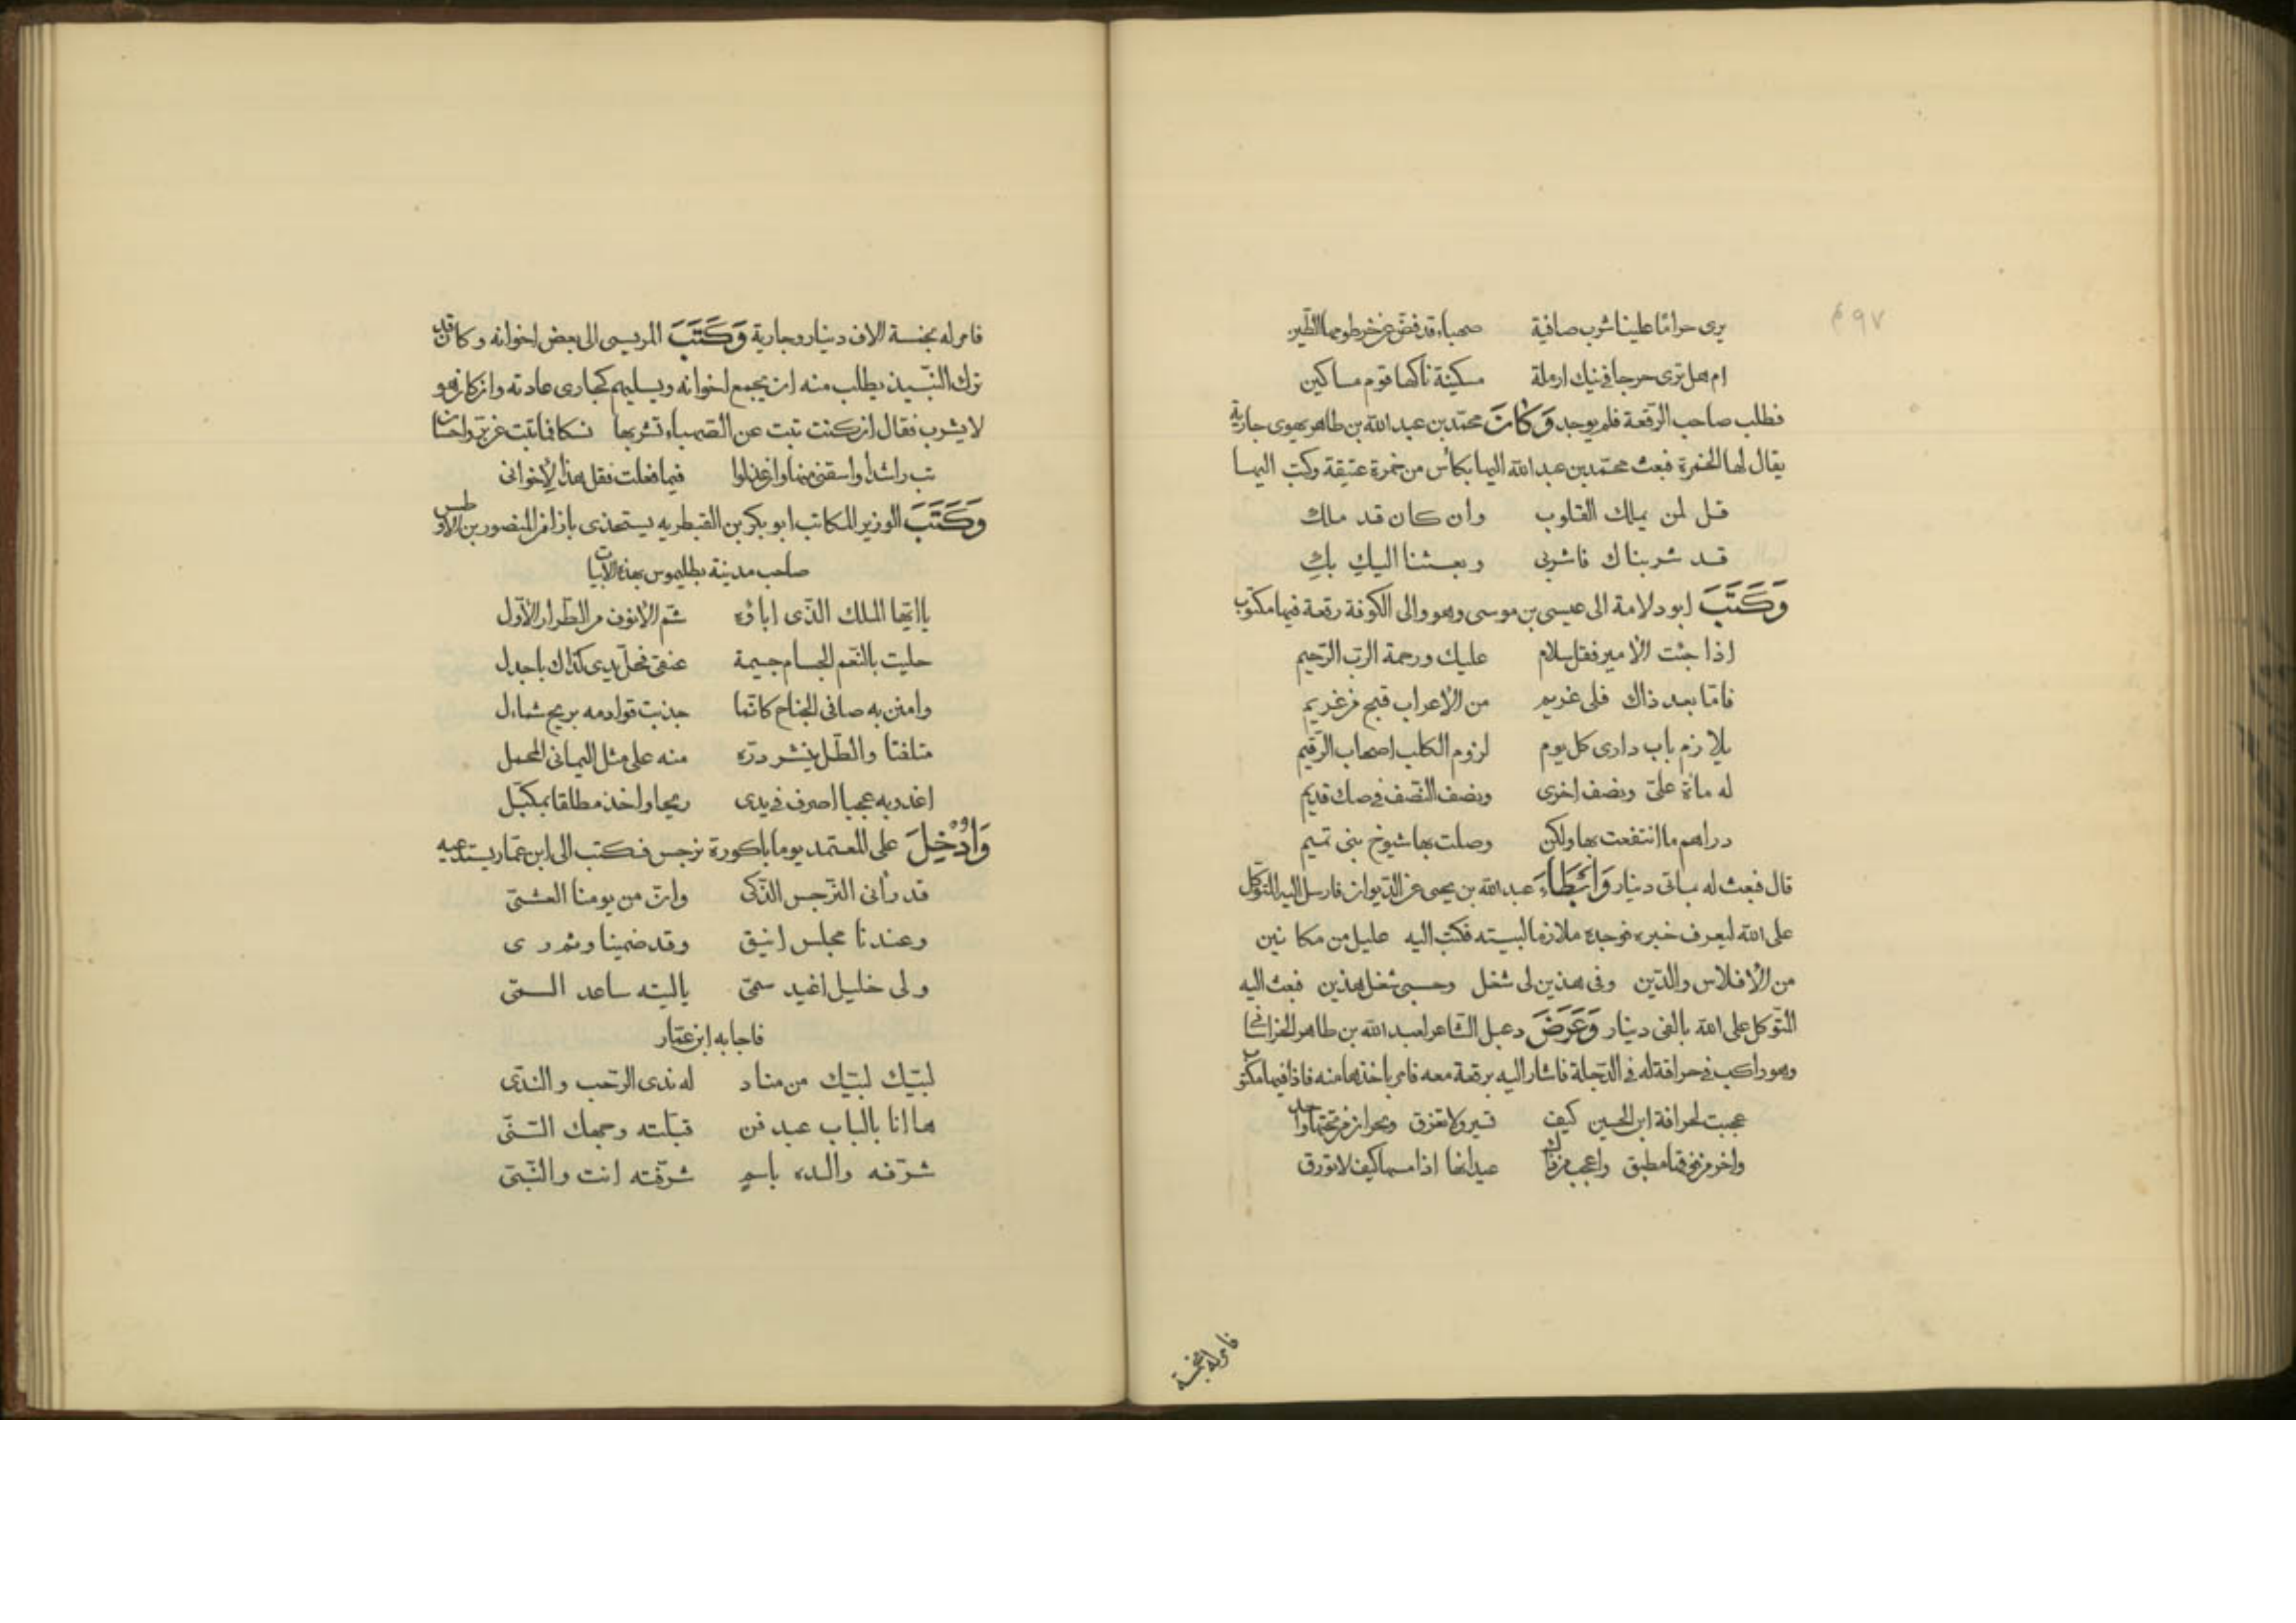 ٩٧م
يرى حراما علينا شرب صافية صهباء قد فض عن خرطومها الطين
ام هل ترى حرجا في نيك ارملة مسكينة ناكها قوم مساكين
فطلب صاحب الرقعة فلم يوجد وَكَانَ محمد بن عبد الله بن طاهر يهوى جارية
يقال لها الخمرة فبعث محمد بن عبد الله اليها بكأس من خمرة عتيقة وكتب اليها
قل لمن يملك القلوب وان كان قد ملك
قد شربناك فاشربى وبعثنا اليكِ بكِ
وَكَتَبَ ابو دلامة الى عيسى بن موسى وهو والى الكوفة رقعة فيها مكتوب
اذا جئت الأمير فقل سلام عليك ورحمة الرب الرحيم
فامّا بعد ذاك فلى غريم من الأعراب قبح من غريم
يلازم باب دارى كل يوم لزوم الكلب اصحاب الرقيم
له مأة علىّ ونصف اخرى ونصف النصف فى صك قديم
دراهم ما انتفعت بها ولكن وصلت بها شيوخ بنى تميم
قال فبعث له بمأتى دينار وَابْطَاءَ عبد الله بن يحيى عن الديوان فارسل اليه المتوكل
على الله ليعرف خبره فوجده ملازما لبيته فكتب اليه عليل من مكانين
من الأفلاس والدّين وفى هذين لى شغل وحسبى شغل هذين فبعث اليه
المتوكل على الله بالفى دينار وَعَرَضَ دعبل الشاعر لعبد الله بن طاهر الخراسانى
وهو راكب فى حراقة له فى الدجلة فاشار اليه برقعة معه فامر باخذها منه فاذا فيها مكتوب
عجبت لحراقة ابن الحسين كيف تسير ولا تغرق وبحران من تحتها واحد
واخر من فوقها مطبق واعجب من ذاك عيدانها اذا مسها كيف لا تورق
فامر له بخمسة
فامر له بخمسة الاف دينار وجارية وَكَتَبَ المريسى الى بعض اخوانه وكان قد
ترك النبيذ يطلب منه ان يجمع اخوانه ويسليهم كجارى عادته وان كان هو
لا يشرب فقال ان كنت تبت عن الصهباء تشربها نسكا فما تبت عن بر واحسان
تب راشدا واسقنى منها وان عذلوا فيما فعلت فقل هذا لإخوانى
وَكَتَبَ الوزير الكاتب ابو بكر بن القبطريه يستهدى بازا من المنصور بن الأفطس
صاحب مدينة بطليموس بهذه الأبيات
ياايها الملك الذى اباؤه شم الأنوف من الطراز الأول
حليت بالنعم الجسام جسيمة عنقى فحل يدى كذاك باجدل
وامنن به صافى الجناح كانما جذبت قوادمه بريح شمأل
متلفتا والطل ينثر درّه منه على مثل اليمانى المحمل
اغدو به عجبا اصرف فى يدى ريحا واخذ مطلقا بمكبل
وَأُدْخِلَ على المعتمد يوما باكورة نرجس فكتب الى ابن عمار يستدعيه
قد رأنى النرجس الذكى وان من يومنا العشى
وعندنا مجلس انيق وقد ضمينا وثم رى
ولى خليل اغيد سمى ياليته ساعد السمى
فاجابه ابن عمار
لبّيك لبّيك من مناد له ندى الرحب والندى
ها انا بالباب عبد قن قبلته وجهك السنى
شرّفه والده باسم شرفته انت والنبى